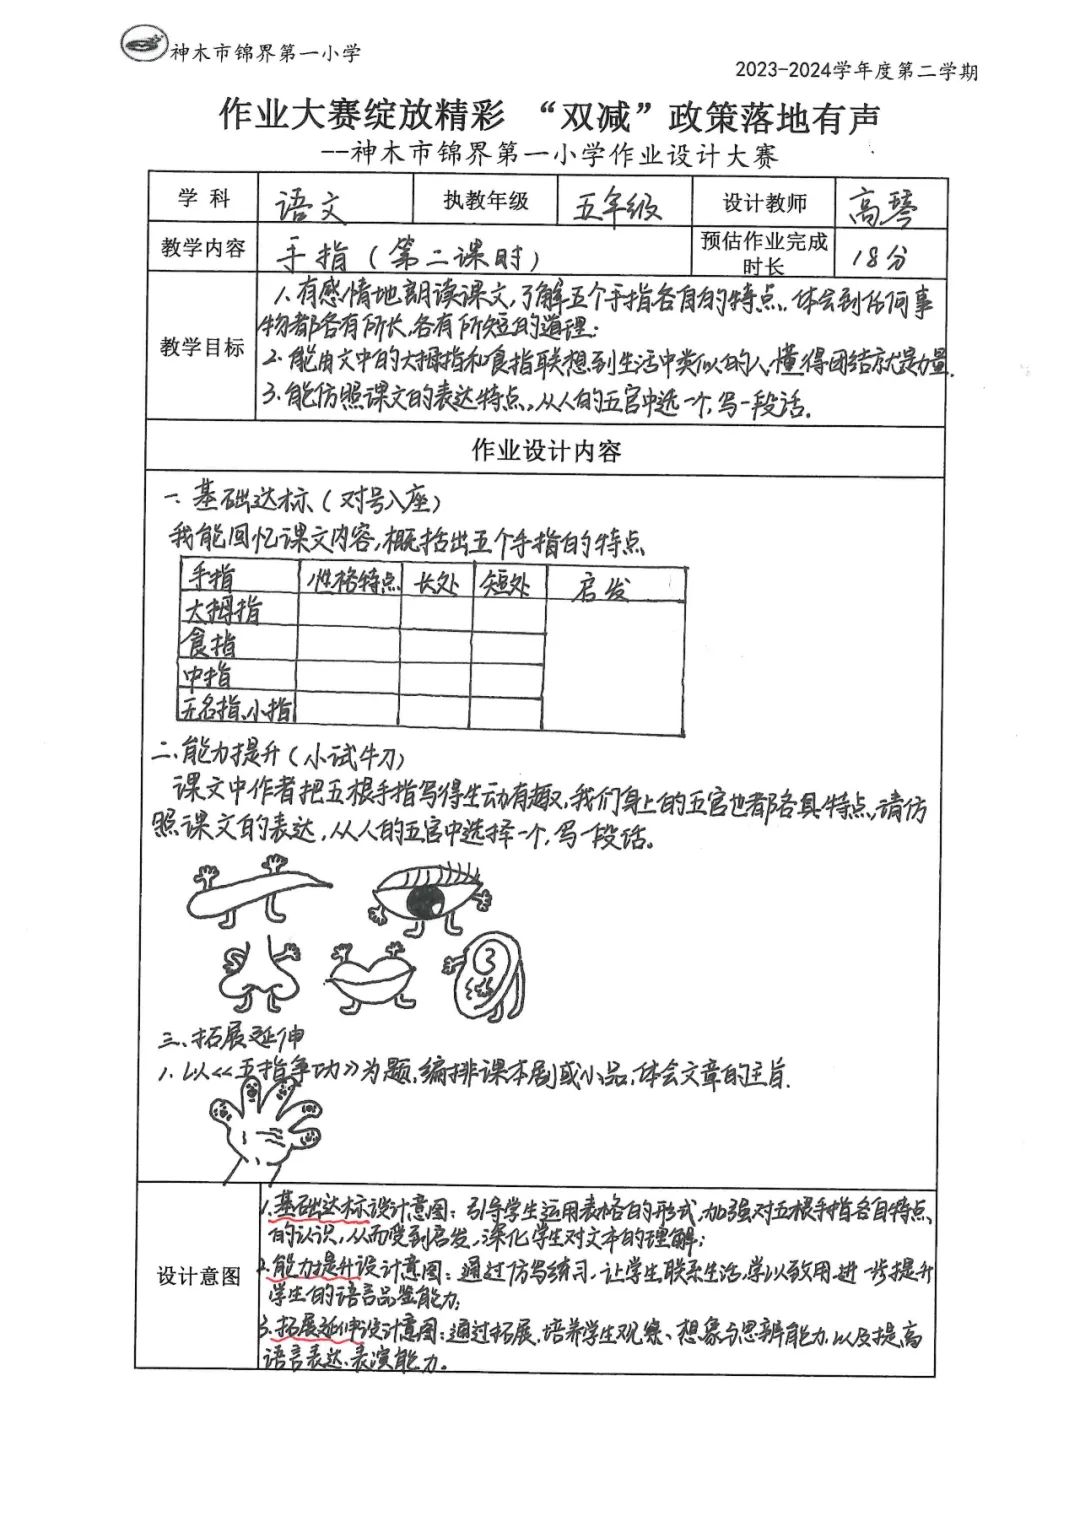 神木市锦界第一小学
2023-2024学年度第二学期
作业大赛绽放精彩 “双减”政策落地有声
--神木市锦界第一小学作业设计大赛
学 科 语文 执教年级 五年级 设计教师 高琴
教学内容 手指(第二课时) 预估作业完成时长 18分
教学目标
1.有感情地朗读课文,了解五个手指各自的特点。体会到任何事
物都各有所长,各有所短的道理;
2.能用文中的大拇指和食指联想到生活中类似的人,懂得团结就是力量.
3.能仿照课文的表达特点,从人的五官中选一个,写一段话.
作业设计内容
一、基础达标(对号入座)
我能回忆课文内容,概括出五个手指的特点
手指 性格特点 长处 短处 启发
大拇指
食指
中指
无名指、小指
二、能力提升(小试牛刀)
课文中作者把五根手指写得生动有趣,我们身上的五官也都各具特点,请仿
照课文的表达,从人的五官中选择一个,写一段话。
三、拓展延伸
1.以《五指争功》为题,编排课本剧或小品,体会文章的主旨.
设计意图
1.基础达标设计意图:引导学生运用表格的形式,加强对五根手指各自特点
的认识,从而受到启发,深化学生对文本的理解;
2.能力提升设计意图:通过仿写练习,让学生联系生活,学以致用,进一步提升
学生的语言品鉴能力;
3.拓展延伸设计意图:通过拓展,培养学生观察、想象与思辨能力,以及提高
语言表达、表演能力。